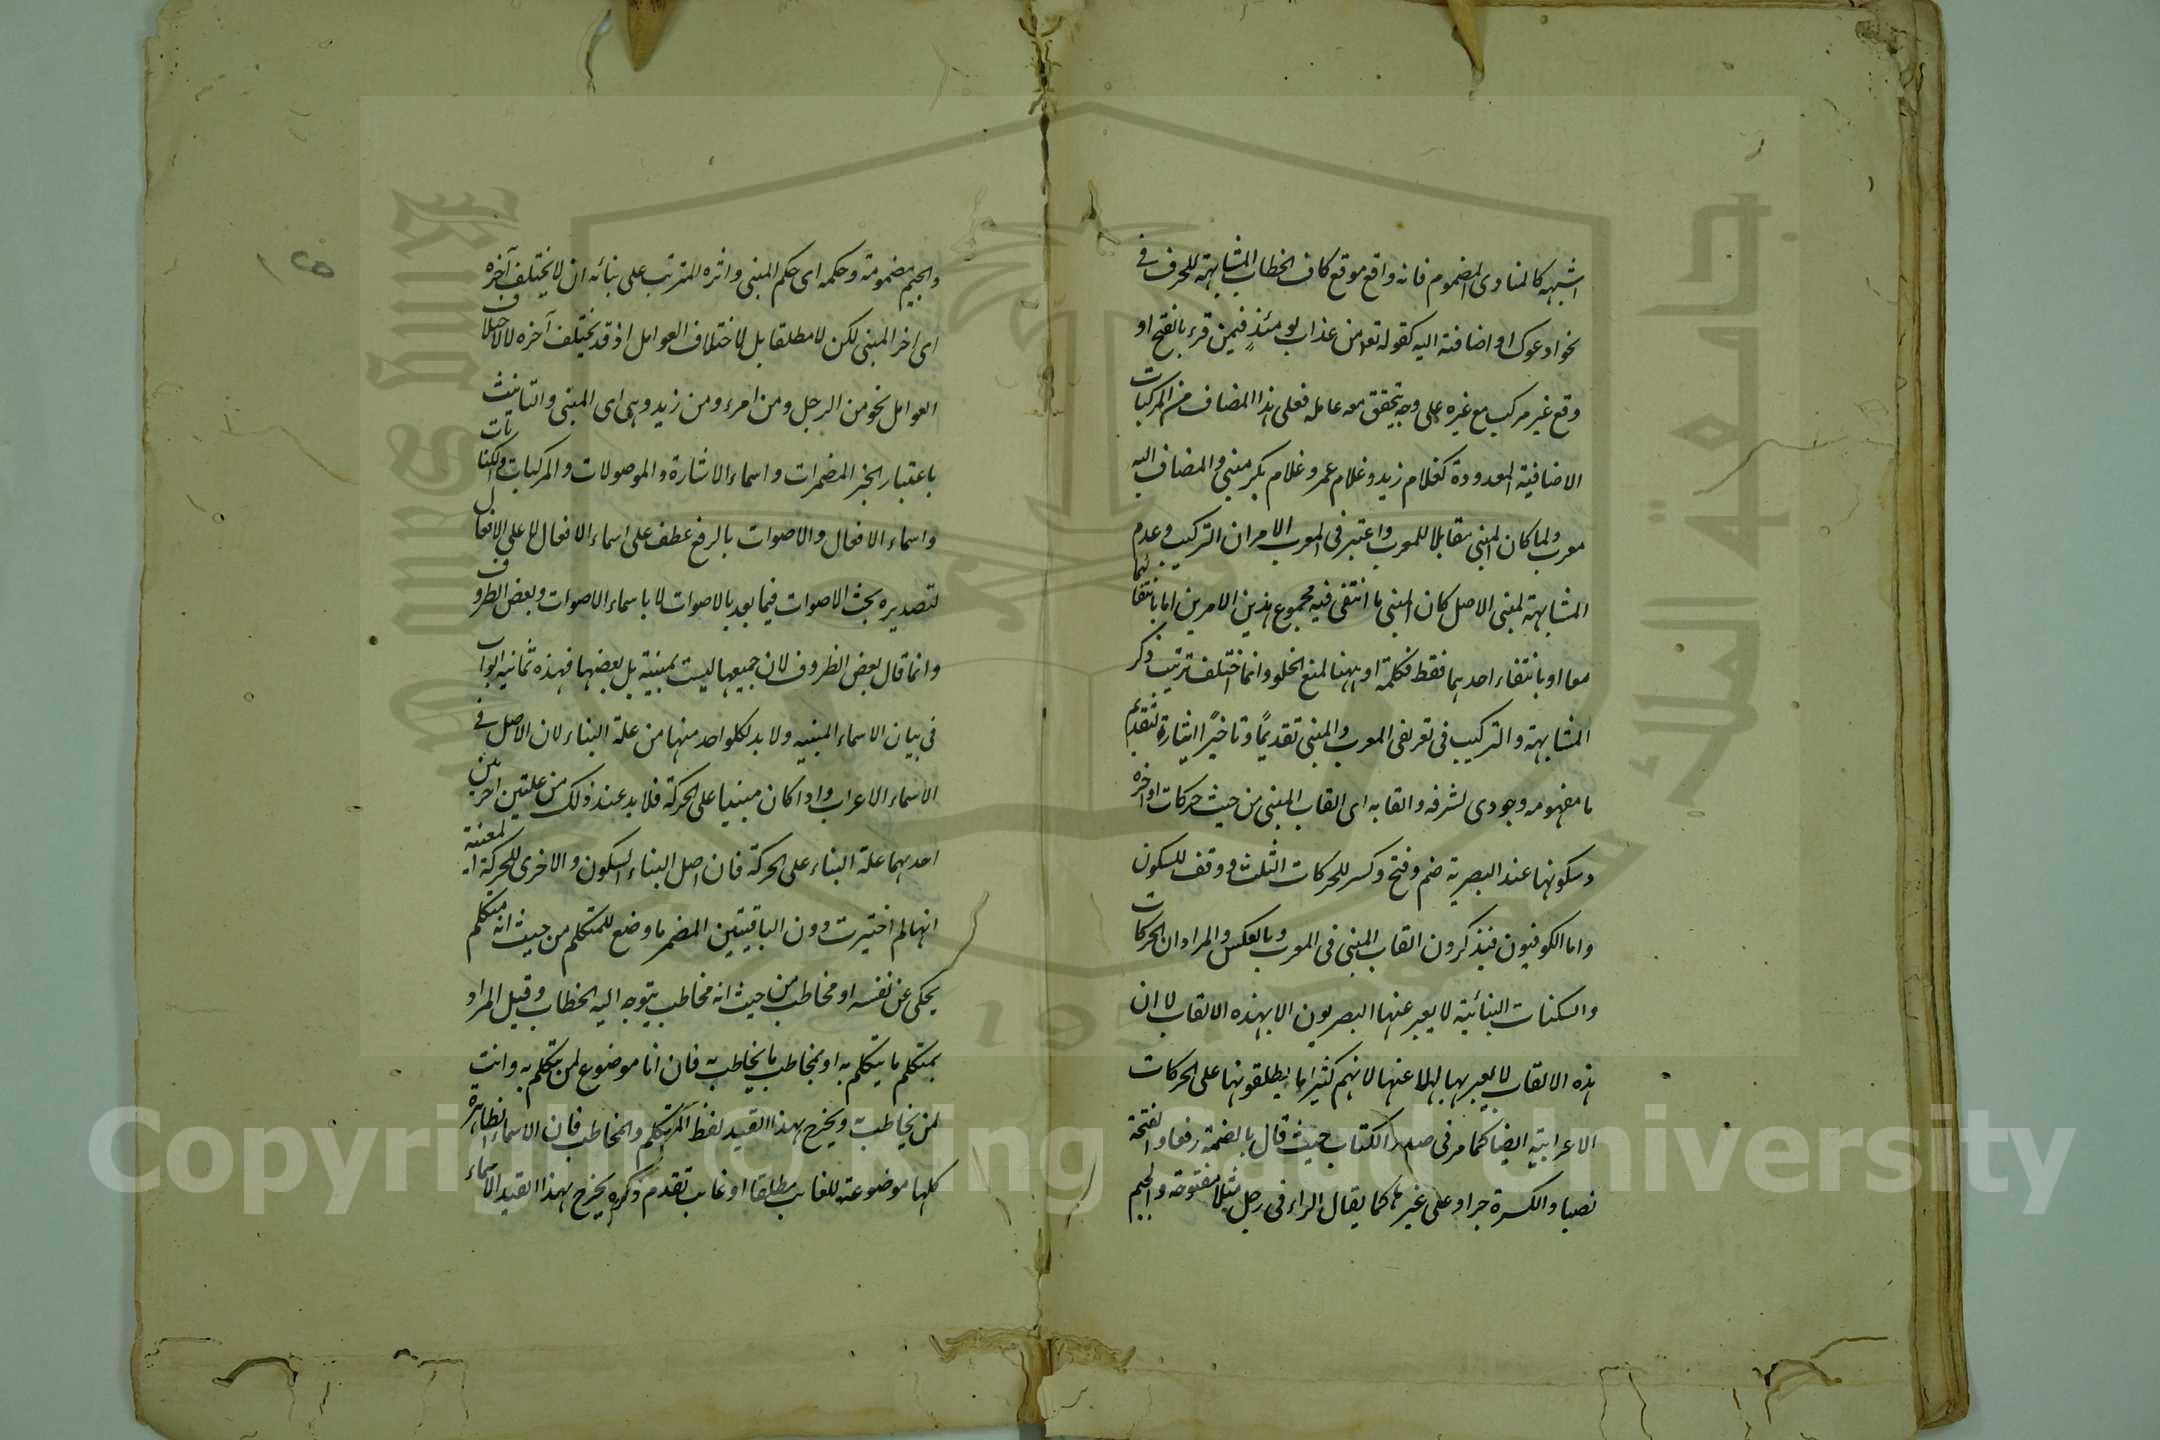 اشبهه كالمنادى المضموم فانه واقع موقع كاف الخطاب المشابهة للحرف في
نحو ادعوك او اضافته اليه كقوله تعه من عذاب يومئذٍ فيمن قرء بالفتح او
وقع غير مركب مع غيره على وجه يتحقق معه عامله فعلى هذا المضاف من المركبات
الاضافية المعدودة كغلام زيد وغلام عمرو غلام بكر مبنى والمضاف اليه
معرب ولما كان المبنى مقابلا للمعرب واعتبر فى المعرب الامران التركيب وعدم
المشابهة لمبنى الاصل كان المبنى ما انتفى فيه مجموع هذين الامرين اما بانتفائهما
معا او بانتفاء احدهما فقط فكلمة او ههنا لمنع الخلو وانما اختلف ترتيب ذكر
المشابهة والتركيب فى تعريفى المعرب والمبنى تقديمًا وتاخيرًا ايثارة لتقديم
ما مفهومه وجودى لشرفه والقابه اى القاب المبنى من حيث حركات اواخره
وسكونها عند البصرية ضم وفتح وكسر للحركات الثلث ووقف للسكون
واما الكوفيون فيذكرون القاب المبنى فى المعرب وبالعكس والمراد ان الحركات
والسكنات البنائية لا يعبر عنها البصريون الا بهذه الالقاب لا ان
هذه الالقاب لا يعبر بها الا عنها لانهم كثيرا ما يطلقونها على الحركات
الاعرابية ايضا كما مر فى صدر الكتاب حيث قال بالضمة رفعا والفتحة
نصبا والكسرة جرا وعلى غيرها كما يقال الراء فى رجل مثلا مفتوحة والجيم
والجيم مضمومة وحكمه اى حكم المبنى واثره المترتب على بنائه ان لا يختلف آخره
اى اخر المبنى لكن لا مطلقا بل لاختلاف العوامل اذ قد يختلف آخره لا لاختلاف
العوامل نحو من الرجل ومن امرء ومن زيد وهى اى المبنى والتانيث
باعتبار الخبر المضمرات واسماء الاشارة والموصولات والمركبات والكنايات
واسماء الافعال والاصوات بالرفع عطف على اسماء الافعال لا على الافعال
لتصديره بحث الاصوات فيما بعد بالاصوات لا باسماء الاصوات وبعض الظروف
وانما قال بعض الظروف لان جميعها ليست بمبنية بل بعضها فهذه ثمانية ابواب
فى بيان الاسماء المبنيه ولا بد لكلواحد منها من علة البناء لان الاصل فى
الاسماء الاعراب واذا كان مبنيا على الحركة فلا بد عند ذلك من علتين اخريين
احديهما علة البناء على الحركة فان اصل البناء السكون والاخرى للحركة المعينة
انها لم اختيرت دون الباقيتين المضمر ما وضع للمتكلم من حيث انه متكلم
يحكى عن نفسه او مخاطب من حيث انه مخاطب يتوجه اليه الخطاب وقيل المراد
بمتكلم ما يتكلم به او بمخاطب ما يخاطب به فان انا موضوع لمن يتكلم به وانت
لمن يخاطب ويخرج بهذا القيد لفظ المتكلم والمخاطب فان الاسماء الظاهرة
كلها موضوعة للغائب مطلقا او غائب تقدم ذكره يخرج بهذا القيد الاسماء
جامعة الملك سعود
King Saud University
Copyright © King Saud University